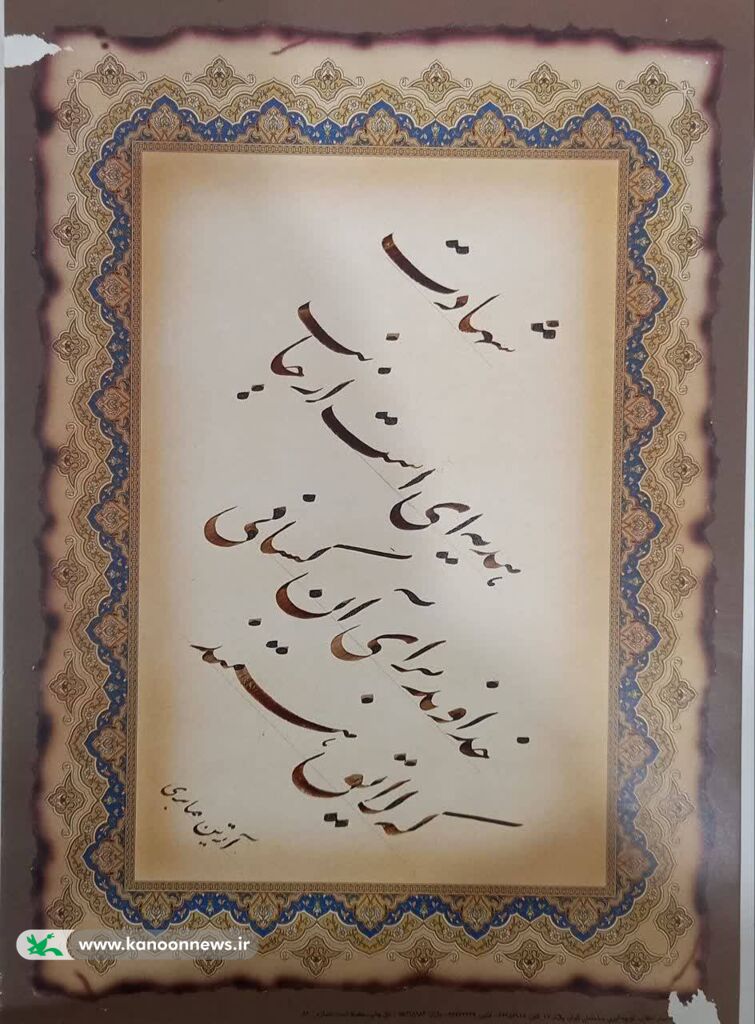 شهادت
هدیه ای است از جانب
خداوند برای آن کسانی
که لایق هستند
آرتین صابری
www.kanoonnews.ir